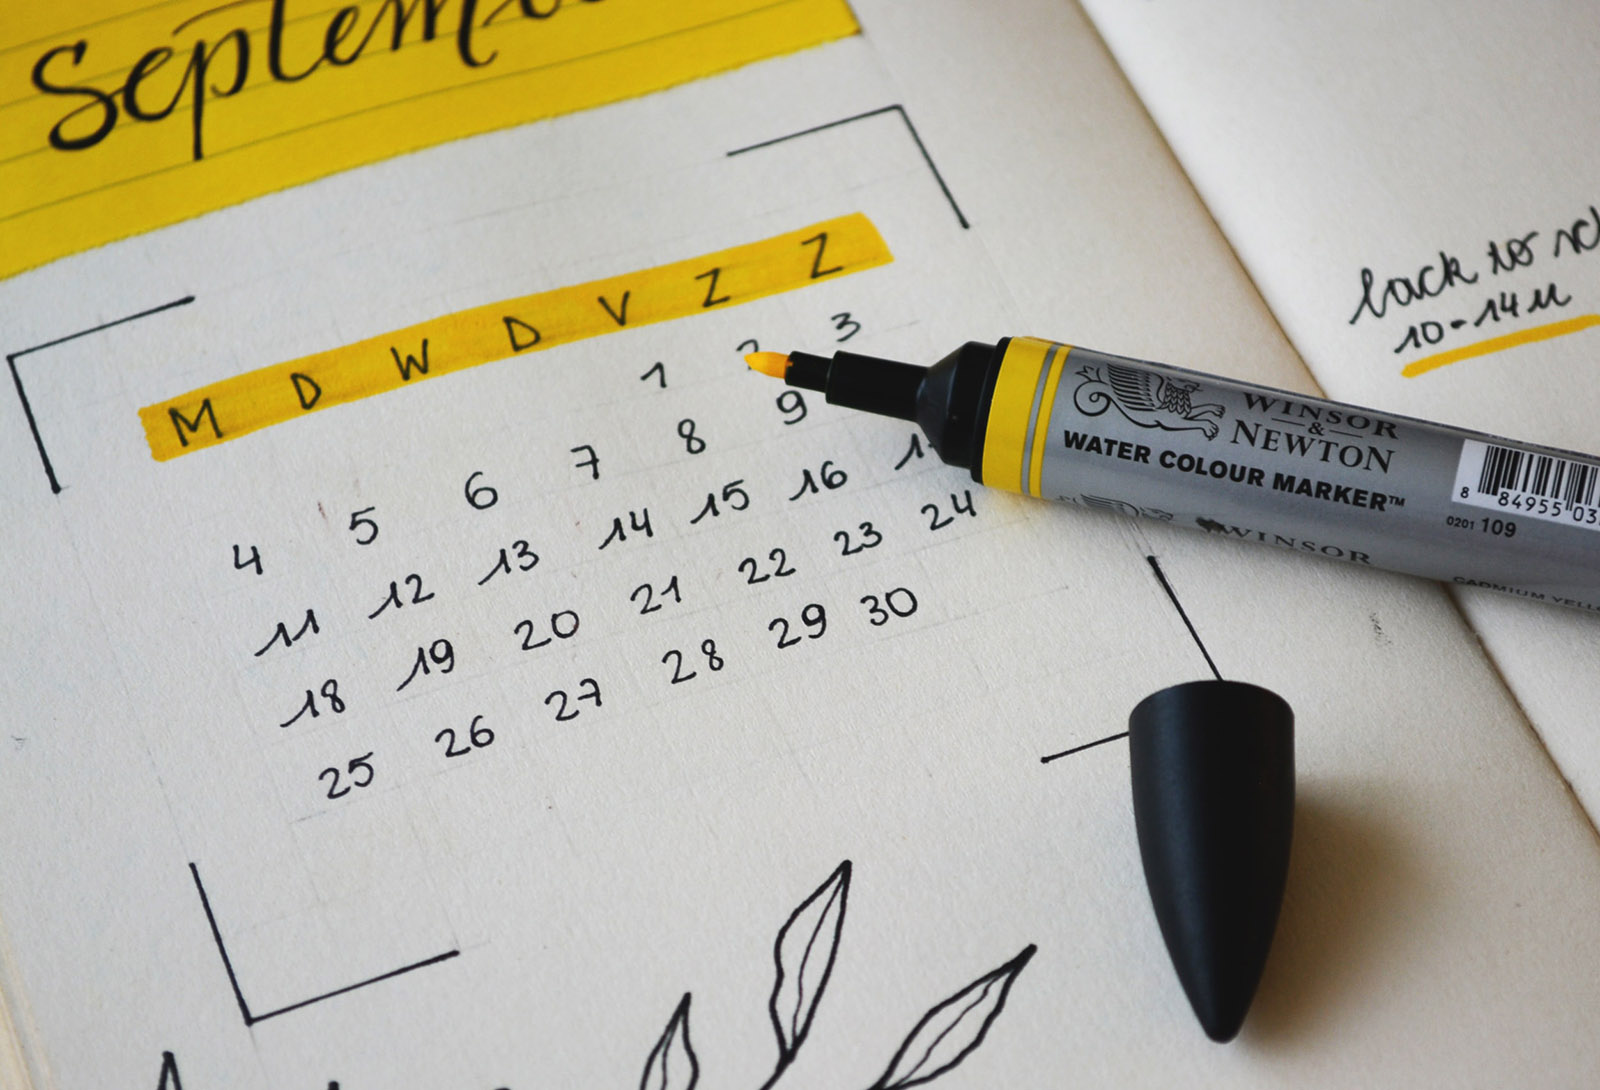 Septem
M D W D V Z Z
1 2 3
4 5 6 7 8 9
11 12 13 14 15 16
18 19 20 21 22 23 24
25 26 27 28 29 30
back to
10-14u
WINSOR
&
NEWTON
WATER COLOUR MARKER™
8 84955 03
0201 109
WINSOR
CADMIUM YELL